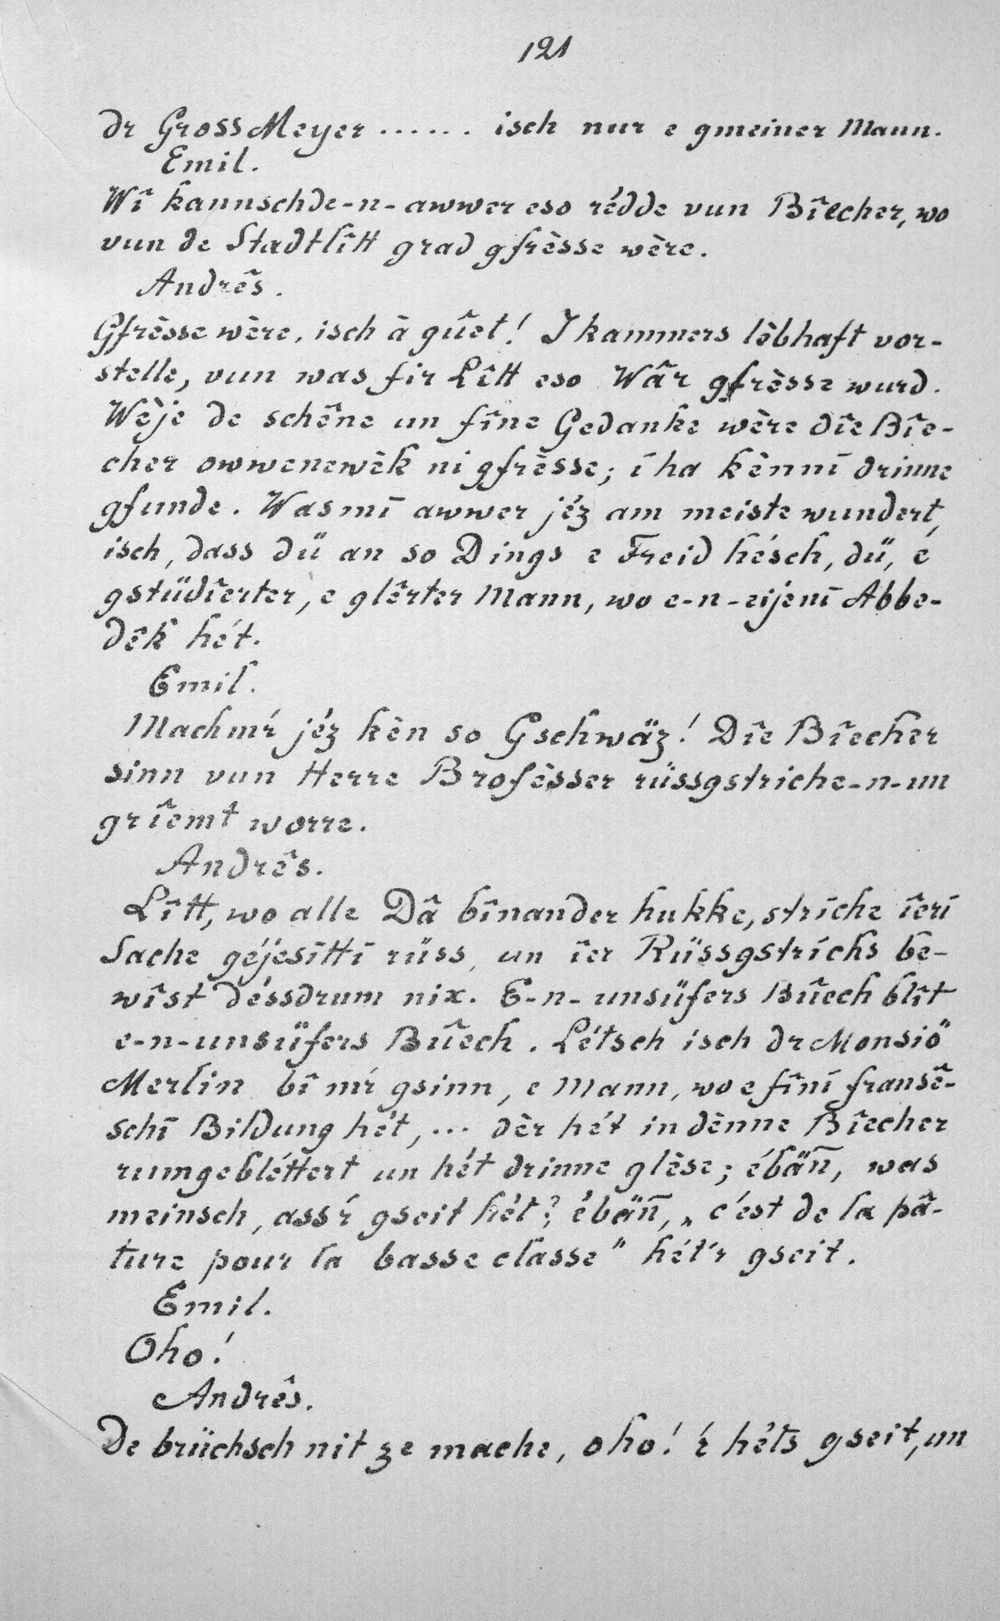 121
dr Gross Meyer ...... isch nur e gmeiner Mann.
Emil.
Wî kannschde-n-awwer eso rédde vun Bîecher, wo
vun de Stadtlîtt grad gfrèsse wère.
Andrês.
Gfrèsse wère, isch à gûet! I kammers lèbhaft vor-
stelle, vun was fir Lîtt eso Wâr gfrèsse wurd.
Wèje de schêne un fîne Gedanke wère dîe Bîe-
cher owwenewèk ni gfrèsse; i ha kènni drinne
gfunde. Was mi awwer jéz am meiste wundert,
isch, dass dü an so Dings e Freid hésch, dü, e
gstüdîerter, e glêrter Mann, wo e-n-eijeni Abbe-
dêk hét.
Emil.
Mach mŕ jéz kèn so Gschwäz! Dîe Bîecher
sinn vun Herre Brofèsser rüssgstriche-n-un
grîemt worre.
Andrês.
Lîtt, wo alle Dâ bînander hukke, striche îeri
Sache géjesitti rüss, un îer Rüssgstrichs be-
wîst déssdrum nix. E-n-unsüfers Bûech blît
e-n-unsüfers Bûech. Létsch isch dr Monsiö
Merlin bî mŕ gsinn, e Mann, wo e fîni fransê-
schi Bildung hét, ... dèr hét in dènne Bîecher
rumgebléttert un hét drinne glèse; ébäñ, was
meinsch, ass ŕ gseit hét? ébäñ, „c'est de la pâ-
ture pour la basse classe" hét'r gseit.
Emil.
Oho!
Andrês.
De brüchsch nit ze mache, oho! ŕ héts gseit, un